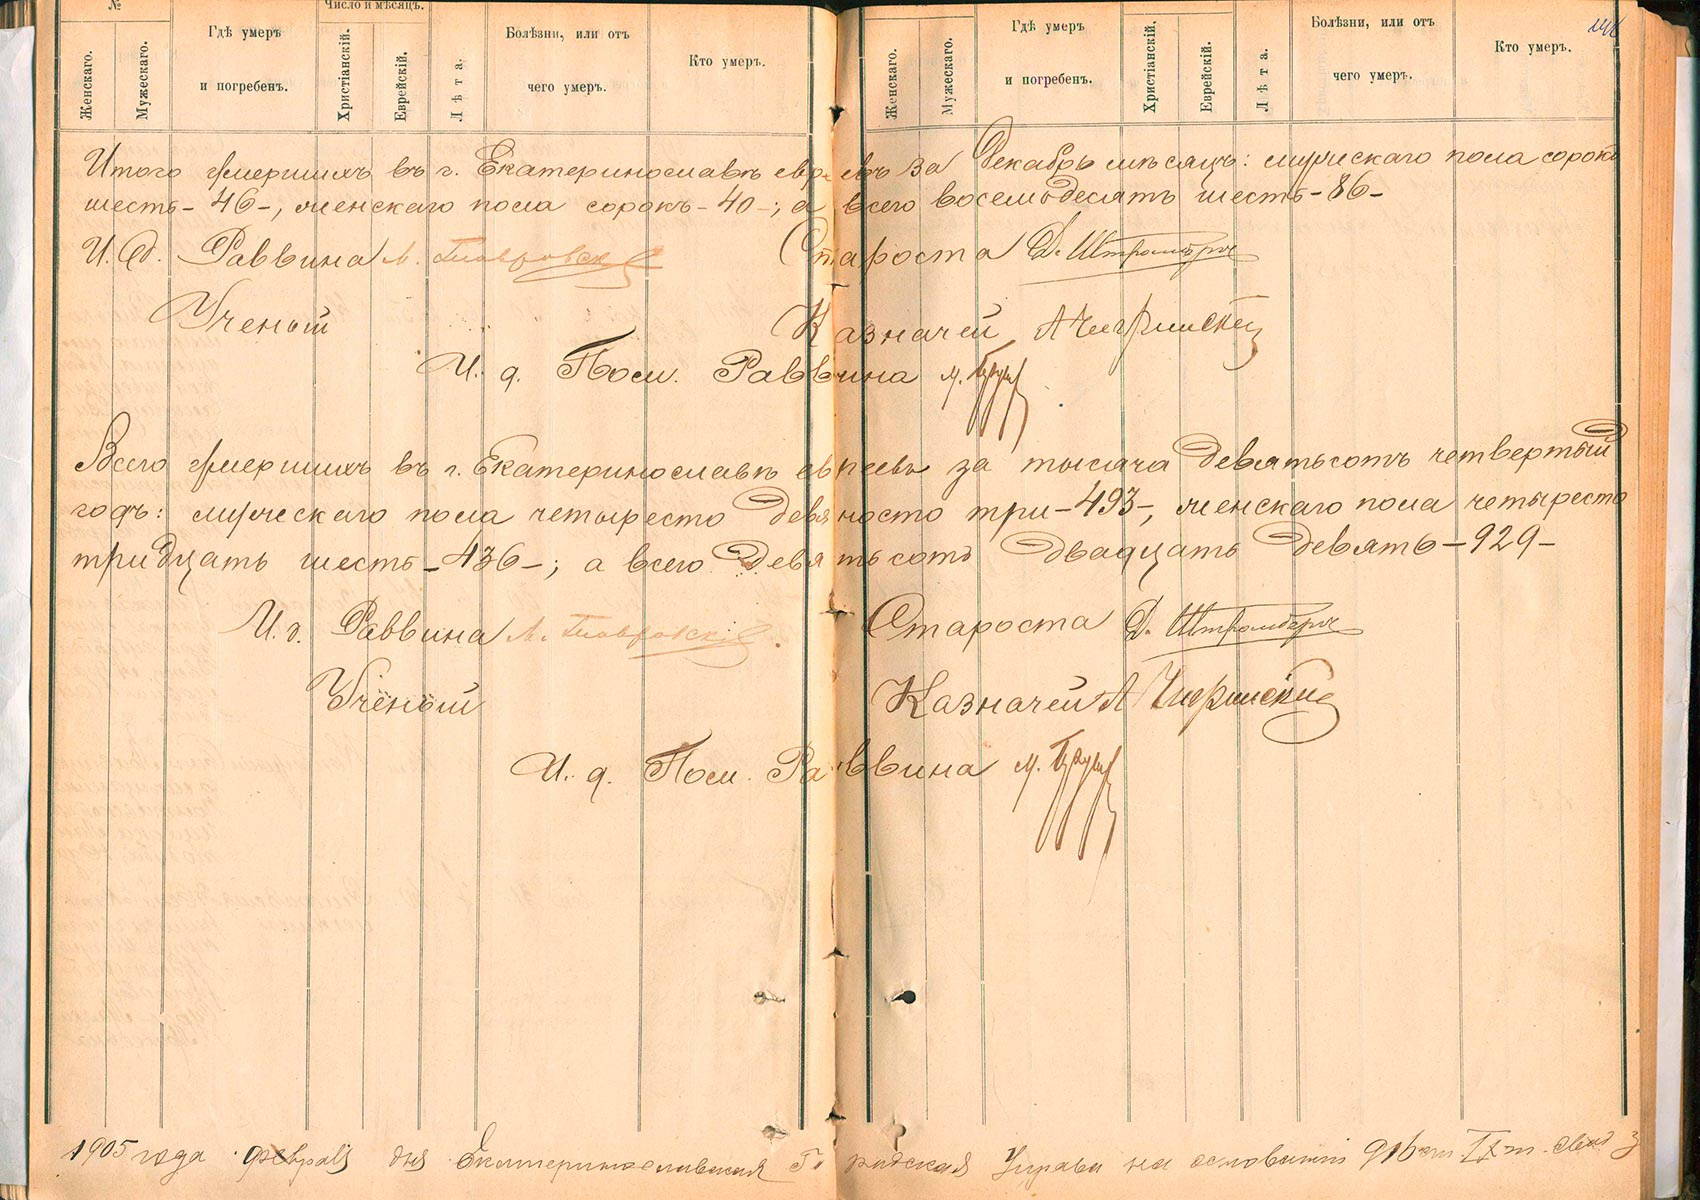 № Число и мѣсяцъ.
Женскаго. Мужескаго. Гдѣ умеръ и погребенъ. Христіанскій. Еврейскій. Лѣта. Болѣзни, или отъ чего умеръ. Кто умеръ.
Женскаго. Мужескаго. Гдѣ умеръ и погребенъ. Христіанскій. Еврейскій. Лѣта. Болѣзни, или отъ чего умеръ. Кто умеръ.
Итого умершихъ въ г. Екатеринославѣ евреевъ за Декабрь мѣсяцъ: мужескаго пола сорокъ
шесть - 46 -, женскаго пола сорокъ - 40 -; а всего восемьдесятъ шесть - 86 -
И. д. Раввина Староста Д. Штромбергъ
Ученый Казначей
И. д. Пом. Раввина М.
Всего умершихъ въ г. Екатеринославѣ евреевъ за тысяча девятьсотъ четвертый
годъ: мужескаго пола четыресто девяносто три - 493 -, женскаго пола четыресто
тридцать шесть - 436 -; а всего девятьсотъ двадцать девять - 929 -
И. д. Раввина Староста Д. Штромбергъ
Ученый Казначей
И. д. Пом. Раввина М.
1905 года февраля дня Екатеринославская Городская Управа на основаніи 916 ст. IX т.